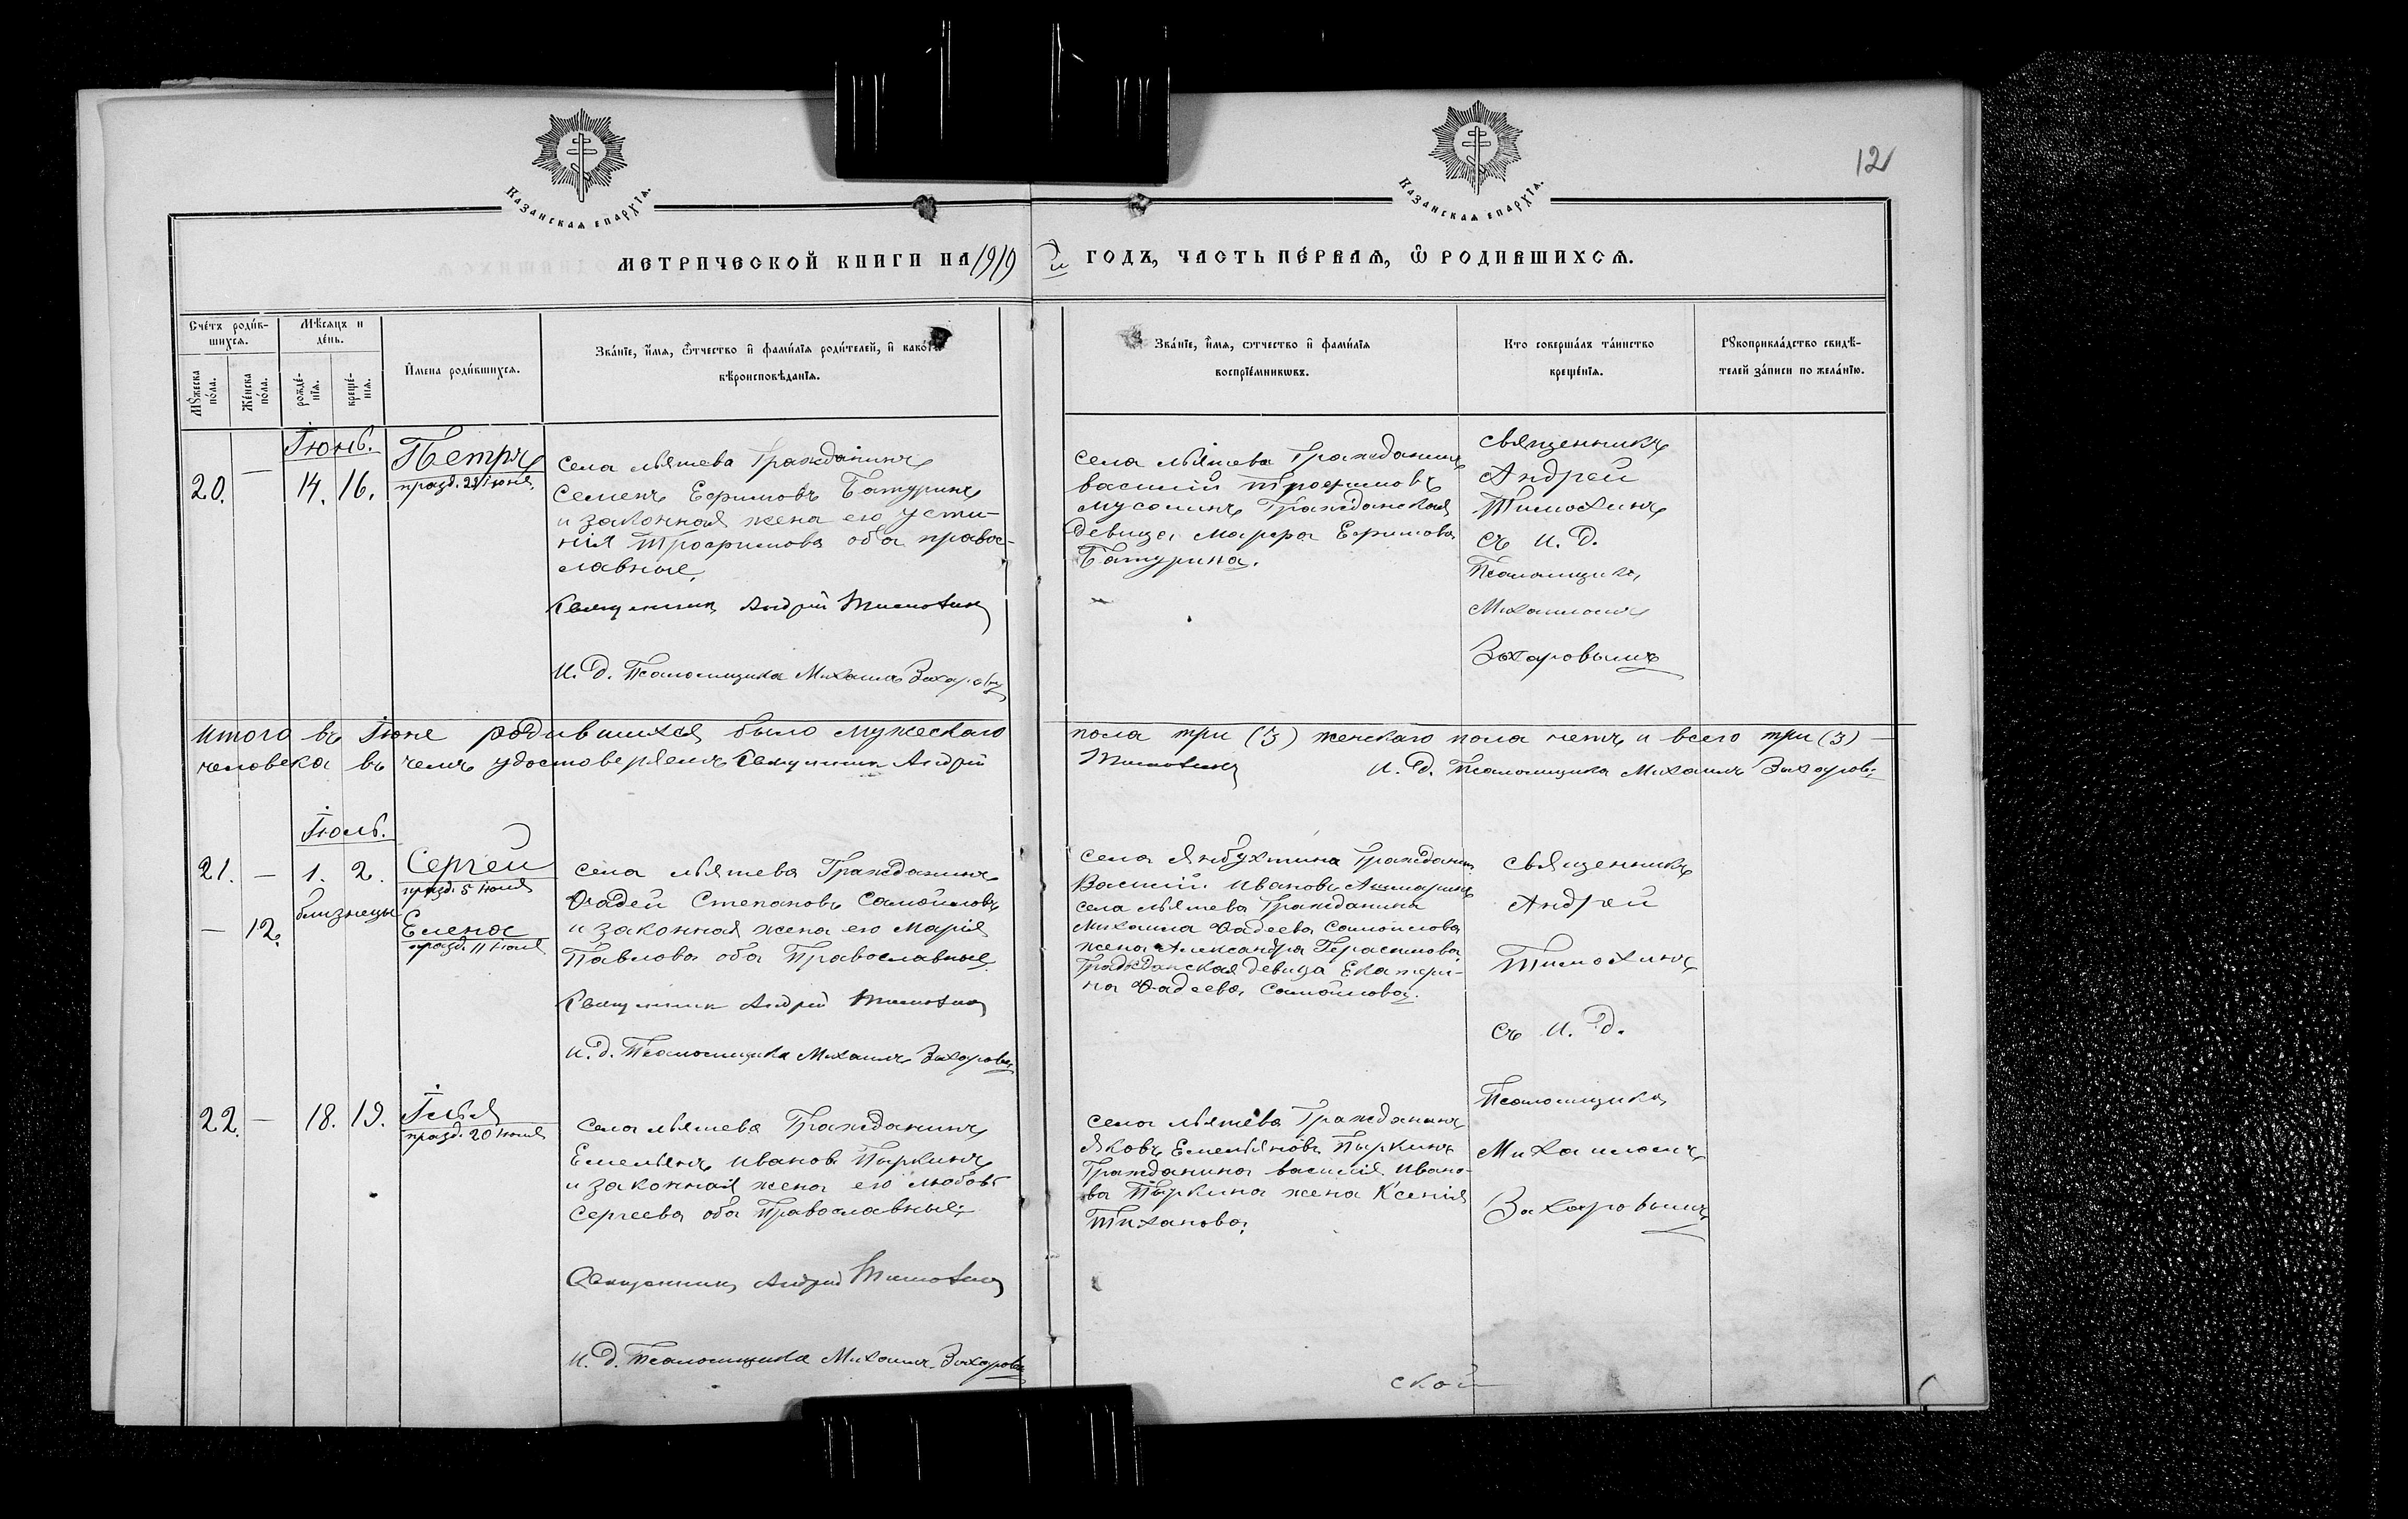 12
Казанская епархїя.
Казанская епархїя.
МЕТРИЧЕСКОЙ КНИГИ НА 1919 й ГОДЪ, ЧАСТЬ ПЕРВАЯ, Ѿ РОДИВШИХСЯ.
Счетъ родив-
шихся.
Мѣсяцъ и
день.
Мужеска
пола.
Женска
пола.
рожде-
нїя.
креще-
нїя.
Имена родившихся.
Званїе, имя, ѿтчество и фамилїя родителей, и какогѡ
вѣроисповѣданїя.
Званїе, имя, ѿтчество и фамилїя
воспрїемникѡвъ.
Кто совершалъ таинство
крещенїя.
Рукоприкладство свидѣ-
телей записи по желанїю.
Іюнь.
20.
—
14.
16.
Петръ
празд. 29 Іюня
села Льяшева Гражданинъ
Семенъ Ефримовъ Батуринъ
и законная жена его Усти-
нія Трофримова оба правос-
лавные.
Священникъ Андрей Тимохинъ
И. Д. Псаломщика Михаилъ Захаровъ
села Льяшева Гражданинъ
Василий Трофимовъ
Мусолинъ Гражданская
девица Марфа Ефримова
Батурина.
Священникъ
Андрей
Тимохинъ
съ И. Д.
Псаломщика
Михаиломъ
Захаровымъ
Итого въ Іюне родившихся было мужескаго пола три (3) женскаго пола нетъ и всего три (3) —
человека въ чемъ удостоверяемъ Священникъ Андрей Тимохинъ И. Д. Псаломщика Михаилъ Захаровъ
Іюль.
21. — 1. 2.
Сергей
празд. 5 Іюля
близнецы
— 12.
Елена
празд. 11 Іюля
села Льяшева Гражданинъ
Фадей Степановъ Самойловъ
и законная жена его Марія
Павлова оба Православные.
Священникъ Андрей Тимохинъ
И. Д. Псаломщика Михаилъ Захаровъ
села Янбухтина Гражданинъ
Василий Ивановъ Ашмаринъ
села Льяшева Гражданина
Михаила Фадеева Самойлова
жена Александра Герасимова
Гражданская девица Екатери-
на Фадеева Самойлова.
Священникъ
Андрей
Тимохинъ
съ И. Д.
Псаломщика
Михаиломъ
Захаровымъ
22. — 18. 19.
Ілья
празд. 20 Іюля
села Льяшева Гражданинъ
Емельянъ Ивановъ Пыркинъ
и законная жена его Любовь
Сергеева оба Православные.
Священникъ Андрей Тимохинъ
И. Д. Псаломщика Михаилъ Захаровъ
села Льяшева Гражданинъ
Яковъ Емельяновъ Пыркинъ
Гражданина Василія Ивано-
ва Пыркина жена Ксенія
Тиханова.
ской